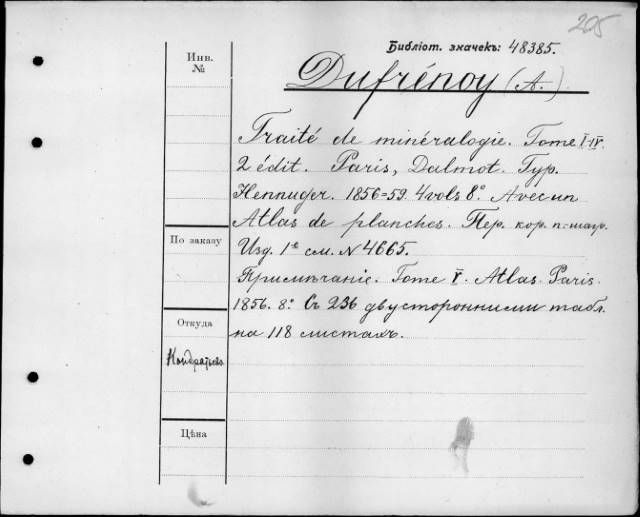 205
Библіот. значекъ: 48385.
Инв.
№
Dufrénoy (A.)
Traité de minéralogie. Tome I-IV.
2 édit. Paris, Dalmot. Typ.
Hennuyer. 1856=59. 4 vols 8°. Avec un
Atlas de planches. Пер. кор. п.-шагр.
По заказу
Изд. 1е см. № 4665.
Примѣчаніе. Tome V. Atlas. Paris.
1856. 8°. Съ 236 двусторонними табл.
Откуда
на 118 листахъ.
Кондратьевъ
Цѣна